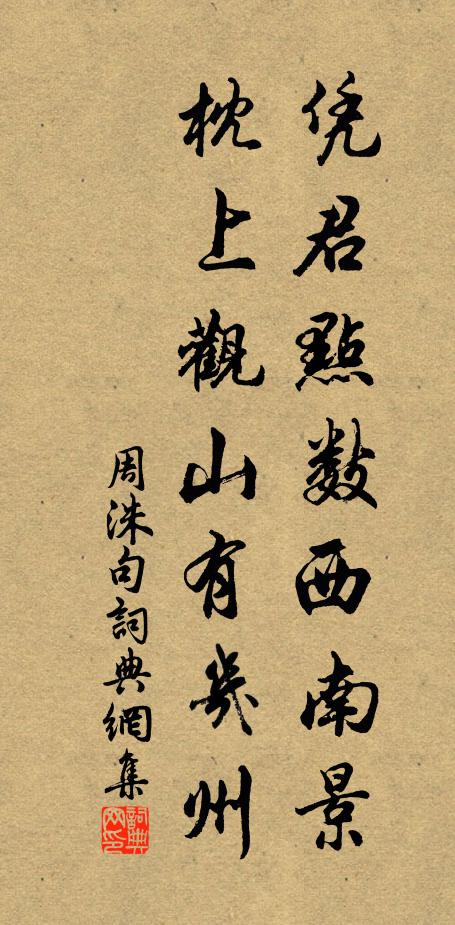 凭君點數西南景
枕上觀山有幾州
周洙句詞典網集
詞典網印